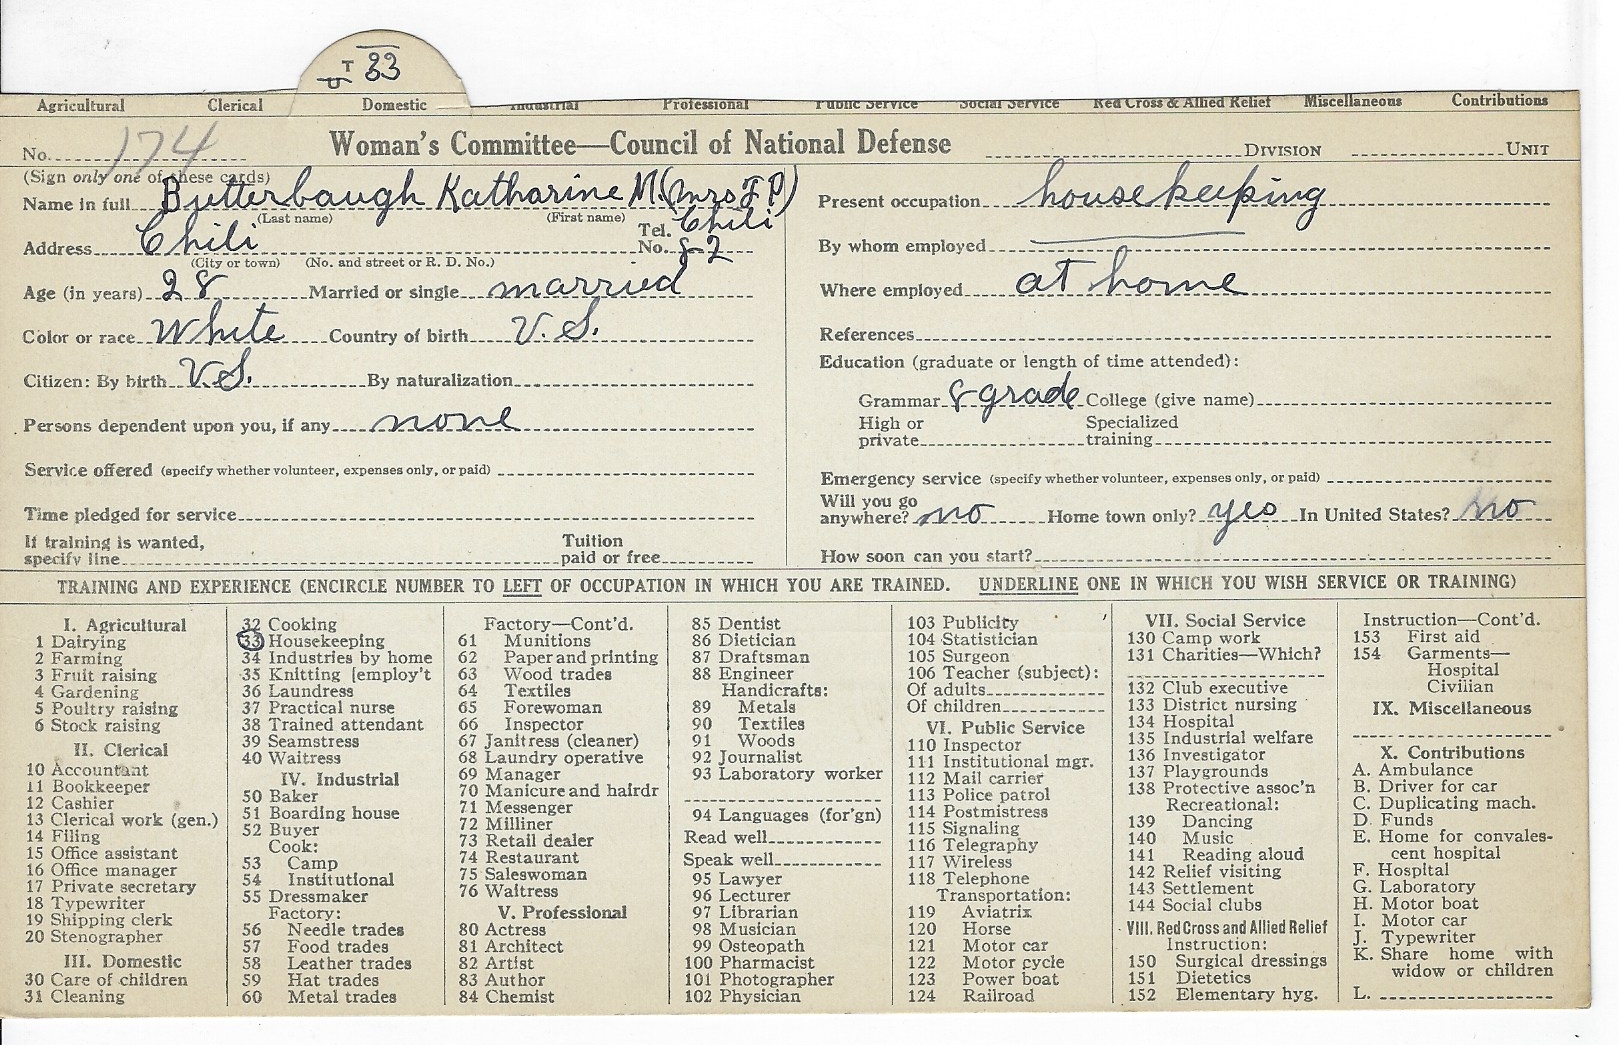 T 33
U
Agricultural Clerical Domestic Industrial Professional Public Service Social Service Red Cross & Allied Relief Miscellaneous Contributions
No. 174 Woman's Committee—Council of National Defense DIVISION UNIT
(Sign only one of these cards)
Name in full Butterbaugh Katharine M. (Mrs F P)
(Last name) (First name)
Address Chili Tel. No. Chili 8-2
(City or town) (No. and street or R. D. No.)
Age (in years) 28 Married or single married
Color or race White Country of birth U. S.
Citizen: By birth U. S. By naturalization
Persons dependent upon you, if any none
Service offered (specify whether volunteer, expenses only, or paid)
Time pledged for service
If training is wanted, specify line Tuition paid or free
Present occupation housekeeping
By whom employed
Where employed at home
References
Education (graduate or length of time attended):
Grammar 8 grade College (give name)
High or private Specialized training
Emergency service (specify whether volunteer, expenses only, or paid)
Will you go anywhere? no Home town only? yes In United States? no
How soon can you start?
TRAINING AND EXPERIENCE (ENCIRCLE NUMBER TO LEFT OF OCCUPATION IN WHICH YOU ARE TRAINED. UNDERLINE ONE IN WHICH YOU WISH SERVICE OR TRAINING)
I. Agricultural
1 Dairying
2 Farming
3 Fruit raising
4 Gardening
5 Poultry raising
6 Stock raising
II. Clerical
10 Accountant
11 Bookkeeper
12 Cashier
13 Clerical work (gen.)
14 Filing
15 Office assistant
16 Office manager
17 Private secretary
18 Typewriter
19 Shipping clerk
20 Stenographer
III. Domestic
30 Care of children
31 Cleaning
32 Cooking
33 Housekeeping
34 Industries by home
35 Knitting [employ't
36 Laundress
37 Practical nurse
38 Trained attendant
39 Seamstress
40 Waitress
IV. Industrial
50 Baker
51 Boarding house
52 Buyer
Cook:
53 Camp
54 Institutional
55 Dressmaker
Factory:
56 Needle trades
57 Food trades
58 Leather trades
59 Hat trades
60 Metal trades
Factory—Cont'd.
61 Munitions
62 Paper and printing
63 Wood trades
64 Textiles
65 Forewoman
66 Inspector
67 Janitress (cleaner)
68 Laundry operative
69 Manager
70 Manicure and hairdr
71 Messenger
72 Milliner
73 Retail dealer
74 Restaurant
75 Saleswoman
76 Waitress
V. Professional
80 Actress
81 Architect
82 Artist
83 Author
84 Chemist
85 Dentist
86 Dietician
87 Draftsman
88 Engineer
Handicrafts:
89 Metals
90 Textiles
91 Woods
92 Journalist
93 Laboratory worker
94 Languages (for'gn)
Read well
Speak well
95 Lawyer
96 Lecturer
97 Librarian
98 Musician
99 Osteopath
100 Pharmacist
101 Photographer
102 Physician
103 Publicity
104 Statistician
105 Surgeon
106 Teacher (subject):
Of adults
Of children
VI. Public Service
110 Inspector
111 Institutional mgr.
112 Mail carrier
113 Police patrol
114 Postmistress
115 Signaling
116 Telegraphy
117 Wireless
118 Telephone
Transportation:
119 Aviatrix
120 Horse
121 Motor car
122 Motor cycle
123 Power boat
124 Railroad
VII. Social Service
130 Camp work
131 Charities—Which?
132 Club executive
133 District nursing
134 Hospital
135 Industrial welfare
136 Investigator
137 Playgrounds
138 Protective assoc'n
Recreational:
139 Dancing
140 Music
141 Reading aloud
142 Relief visiting
143 Settlement
144 Social clubs
VIII. Red Cross and Allied Relief
Instruction:
150 Surgical dressings
151 Dietetics
152 Elementary hyg.
Instruction—Cont'd.
153 First aid
154 Garments—
Hospital
Civilian
IX. Miscellaneous
X. Contributions
A. Ambulance
B. Driver for car
C. Duplicating mach.
D. Funds
E. Home for convales-
cent hospital
F. Hospital
G. Laboratory
H. Motor boat
I. Motor car
J. Typewriter
K. Share home with
widow or children
L.